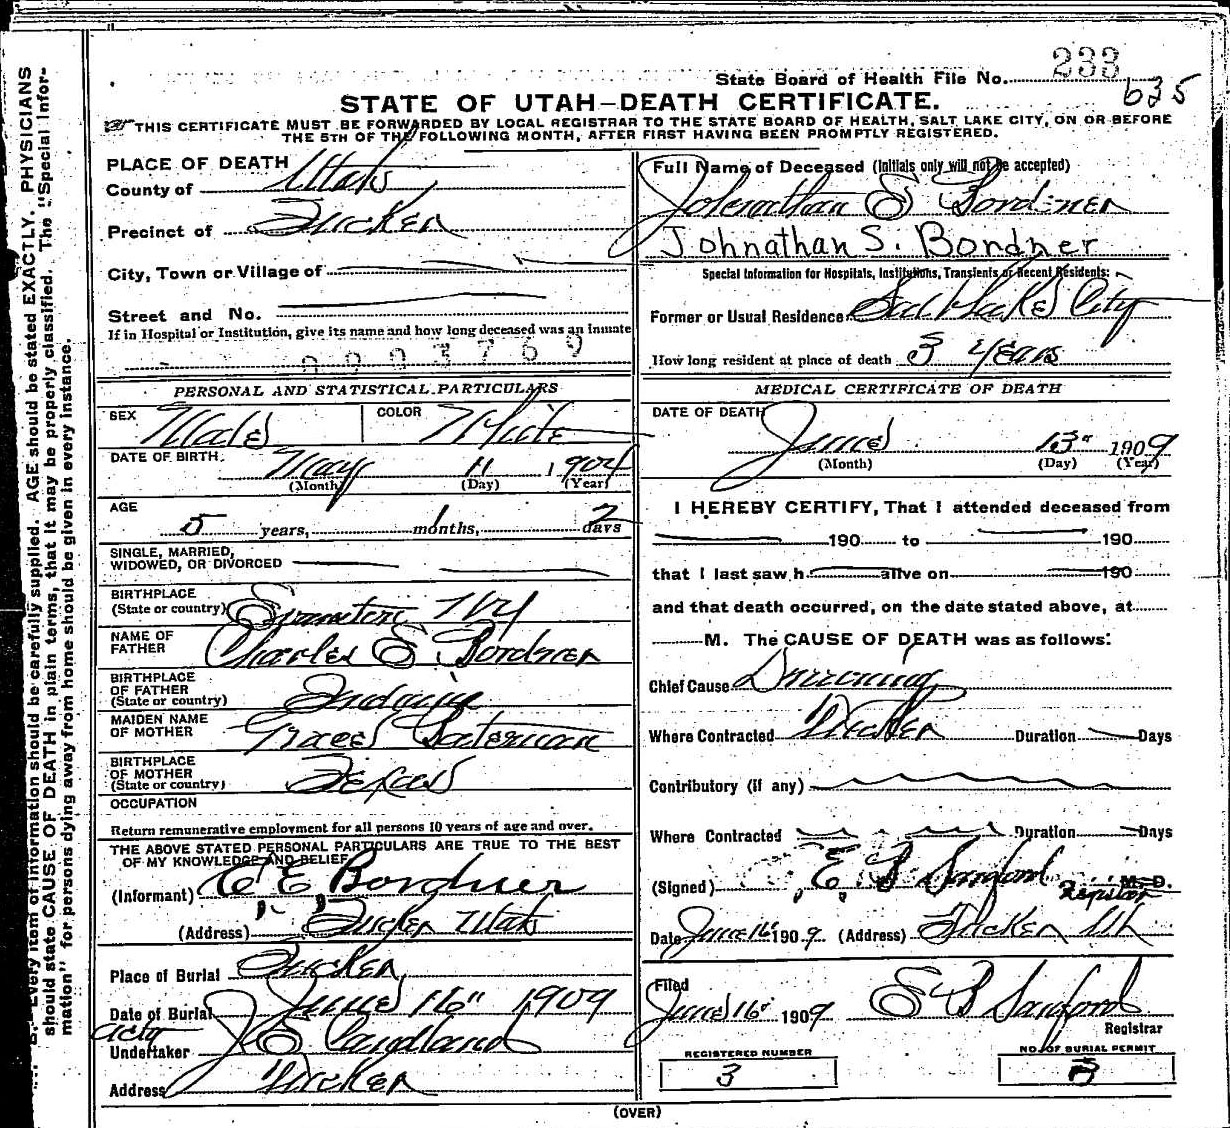 State Board of Health File No. 233
635
STATE OF UTAH—DEATH CERTIFICATE.
THIS CERTIFICATE MUST BE FORWARDED BY LOCAL REGISTRAR TO THE STATE BOARD OF HEALTH, SALT LAKE CITY, ON OR BEFORE
THE 5TH OF THE FOLLOWING MONTH, AFTER FIRST HAVING BEEN PROMPTLY REGISTERED.
Every item of information should be carefully supplied. AGE should be stated EXACTLY. PHYSICIANS
should state CAUSE OF DEATH in plain terms, that it may be properly classified. The "Special Infor-
mation" for persons dying away from home should be given in every instance.
PLACE OF DEATH
County of Utah
Precinct of Tucker
City, Town or Village of
Street and No.
If in Hospital or Institution, give its name and how long deceased was an Inmate
0003769
PERSONAL AND STATISTICAL PARTICULARS
SEX Male COLOR White
DATE OF BIRTH May 11 1904
(Month) (Day) (Year)
AGE
5 years, 1 months, 2 days
SINGLE, MARRIED,
WIDOWED, OR DIVORCED
BIRTHPLACE
(State or country)
NAME OF
FATHER Charles E Bordner
BIRTHPLACE
OF FATHER
(State or country)
MAIDEN NAME
OF MOTHER Grace
BIRTHPLACE
OF MOTHER
(State or country) Texas
OCCUPATION
Return remunerative employment for all persons 10 years of age and over.
THE ABOVE STATED PERSONAL PARTICULARS ARE TRUE TO THE BEST
OF MY KNOWLEDGE AND BELIEF
(Informant) C, E, Bordner
(Address) Tucker Utah
Place of Burial Tucker
Date of Burial June 16" 1909
acty
Undertaker J E
Address Tucker
Full Name of Deceased (Initials only will not be accepted)
Johnathan S Bordner
Johnathan S. Bordner
Special Information for Hospitals, Institutions, Transients or Recent Residents:
Former or Usual Residence Salt Lake City
How long resident at place of death 3 years
MEDICAL CERTIFICATE OF DEATH
DATE OF DEATH
June 13" 1909
(Month) (Day) (Year)
I HEREBY CERTIFY, That I attended deceased from
190 to 190
that I last saw h alive on 190
and that death occurred, on the date stated above, at
M. The CAUSE OF DEATH was as follows:
Chief Cause Drowning
Where Contracted Tucker Duration Days
Contributory (if any)
Where Contracted Duration Days
(Signed) E, B Sanford M. D.
Registrar
Date June 16" 1909 (Address) Tucker Ut
Filed
June 16" 1909 E B Sanford
Registrar
REGISTERED NUMBER
3
NO. OF BURIAL PERMIT
3
(OVER)